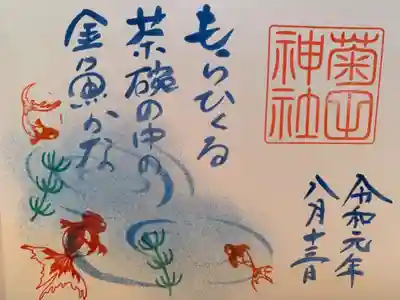 菊田
神社
もらひくる
茶碗の中の
金魚かな
令和元年
八月十三日